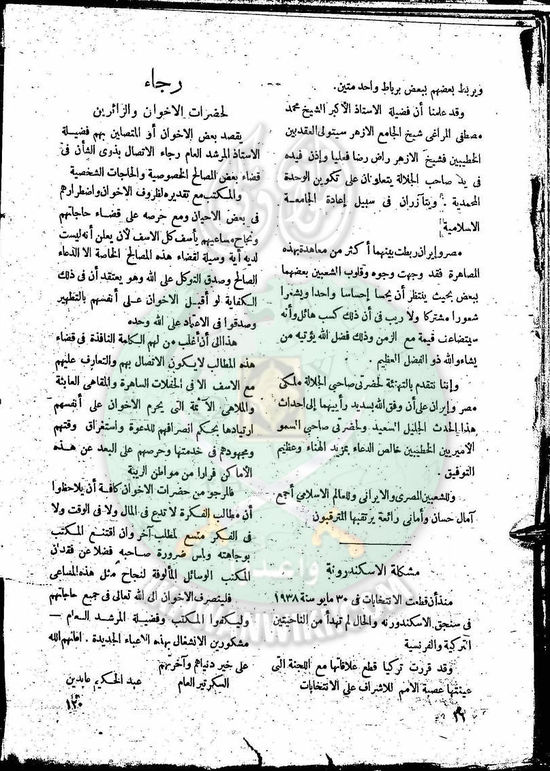 ويربط بعضهم ببعض برباط واحد متين.
وقد علمنا أن فضيلة الاستاذ الأكبر الشيخ محمد
مصطفى المراغى شيخ الجامع الازهر سيتولى العقد بين
الخطيبين فشيخ الازهر راض رضا فعليا وإذن فيده
فى يد صاحب الجلالة يتعاونان على تكوين الوحدة
المحمدية . ويتآزران فى سبيل إعادة الجامعة
الاسلامية
مصر وإيران ربطت بينهما أكثر من معاهدة بهذه
المصاهرة فقد وجهت وجوه وقلوب الشعبين بعضهما
لبعض بحيث ينتظر أن يحسا إحساسا واحدا ويشعرا
شعورا مشتركا ولا ريب فى أن ذلك كسب هائل وأنه
سيتضاعف قيمة مع الزمن وذلك فضل الله يؤتيه من
يشاء والله ذو الفضل العظيم
وإننا نتقدم بالتهنئة لحضرتى صاحبى الجلالة ملكى
مصر وإيران على أن وفق الله بسديد رأييهما إلى احداث
هذا الحدث الجليل السعيد ولحضرتى صاحبى السمو
الأميريين الخطيبين خالص الدعاء بمزيد الهناء وعظيم
التوفيق .
وللشعبين المصرى والايرانى وللعالم الاسلامى أجمع
آمال حسان وأمانى رائعة يرتقبها المترقبون
مشكلة الاسكندرونة
منذ أن قطعت الانتخابات فى ٣٠ مايو سنة ١٩٣٨
فى سنجق الاسكندرونه والحال لم تهدأ من الناحيتين
التركية والفرنسية
وقد قررت تركيا قطع علاقاتها مع اللجنة التى
عينتها عصبة الأمم للاشراف على الانتخابات
رجاء
لحضرات الاخوان والزائرين
يقصد بعض الاخوان أو المتصلين بهم فضيلة
الاستاذ المرشد العام رجاء الاتصال بذوى الشأن فى
قضاء بعض المصالح الخصوصية والحاجات الشخصية
والمكتب مع تقديره لظروف الاخوان واضطرارهم
فى بعض الاحيان ومع حرصه على قضاء حاجاتهم
ونجاح مساعيهم يأسف كل الاسف لأن يعلن أنه ليست
لديه أية وسيلة لقضاء هذه المصالح الخاصة الا الدعاء
الصالح وصدق التوكل على الله وهو يعتقد أن فى ذلك
الكفاية لو أقبل الاخوان على أنفسهم بالتطهير
وصدقوا فى الاعتماد على الله وحده
هذا الى أن أغلب من لهم الكلمة النافذة فى قضاء
هذه المطالب لا يكون الاتصال بهم والتعارف عليهم
مع الاسف الا فى الحفلات الساهرة والمقاهى العابثة
والملاهى الآثمة التى يحرم الاخوان على أنفسهم
ارتيادها بحكم انصرافهم للدعوة واستغراق وقتهم
ومجهودهم فى خدمتها وحرصهم على البعد عن هذه
الأماكن فرارا من مواطن الريبة
فالمرجو من حضرات الاخوان كافة أن يلاحظوا
أن مطالب الفكرة لا تدع فى المال ولا فى الوقت ولا
فى الفكر متسع لمطلب آخر وان اقتنع المكتب
بوجاهته ولمس ضرورة صاحبه فضلا عن فقدان
المكتب الوسائل المألوفة لنجاح مثل هذه المساعى
فلينصرف الاخوان الى الله تعالى فى جميع حاجاتهم
وليكفوا المكتب وفضيلة المرشد العام —
مشكورين الانشغال بهذه الاعباء الجديدة . اعانهم الله
على خير دنياهم وآخرتهم
السكرتير العام عبد الحكيم عابدين